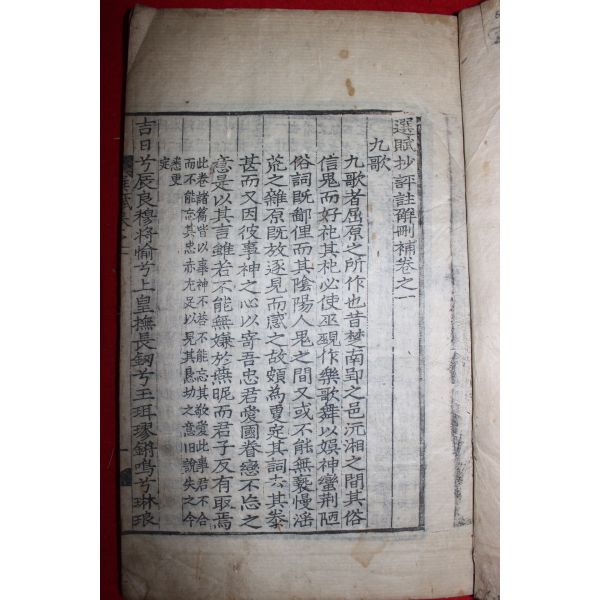 選賦抄評註觧刪補卷之一
九歌
九歌者屈原之所作也昔楚南郢之邑沅湘之間其俗
信鬼而好祀其祀必使巫覡作樂歌舞以娛神蠻荆陋
俗詞既鄙俚而其陰陽人鬼之間又或不能無褻慢淫
荒之雜原既放逐見而感之故頗為更定其詞去其泰
甚而又因彼事神之心以寄吾忠君愛國眷戀不忘之
意是以其言雖若不能無嫌於燕昵而君子反有取焉
此卷諸篇皆以事神不荅不能忘其敬愛比事君不合
而不能忘其忠赤尤足以見其懇切之意旧說失之今
悉更
定
吉日兮辰良穆將愉兮上皇撫長釰兮玉珥璆鏘鳴兮琳琅